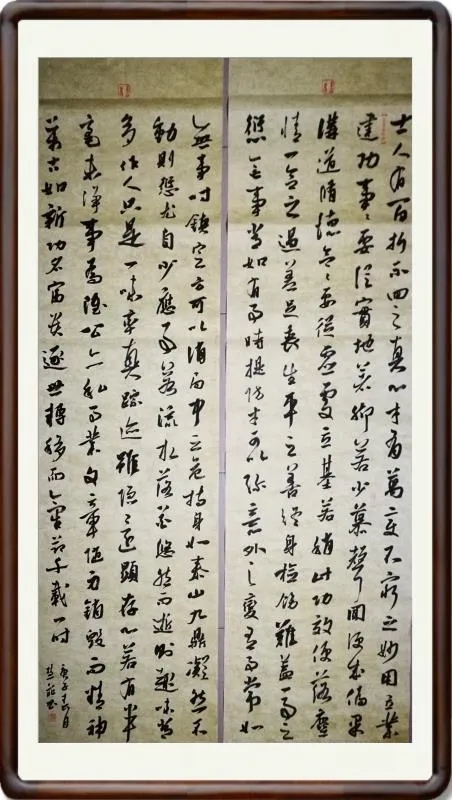 士人有百折不回之真心才有萬變不窮之妙用立業
建功事事要從實地着腳若少慕聲聞便成偽果
講道脩德念念要從虛處立基若稍計功效便落塵
情一念之過差足喪生平之善終身檢飭難蓋一事之
愆無事常如有事時提防才可以弥意外之變有事常如
無事時鎮定方可以消局中之危持身如泰山九鼎凝然不
動則愆尤自少應事若流水落花悠然而逝則趣味常
多作人只是一味率真踪迹雖隱還顯存心若有半
毫未淨事為雖公亦私事業文章隨身銷毀而精神
萬古如新功名富貴逐世轉移而氣節千載一時
庚子